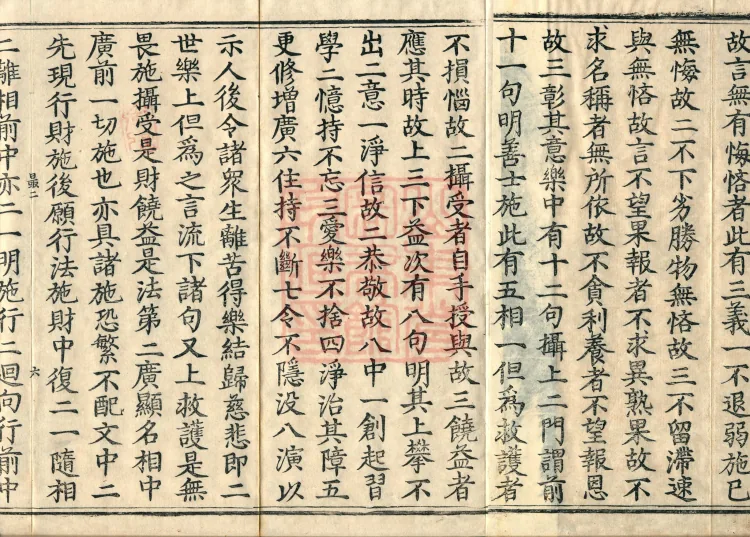 故言無有悔悋者此有三義一不退弱施已
無悔故二不下劣勝物無悋故三不留滯速
與無悋故言不望果報者不求異熟果故不
求名稱者無所依故不貪利養者不望報恩
故三彰其意樂中有十二句攝上二門謂前
十一句明善士施此有五相一但為救護者
不損惱故二攝受者自手授與故三饒益者
應其時故上三下益次有八句明其上攀不
出二意一淨信故二恭敬故八中一創起習
學二憶持不忘三愛樂不捨四淨治其障五
更修增廣六住持不斷七令不隱没八演以
示人後令諸衆生離苦得樂結歸慈悲即二
世樂上但為之言流下諸句又上救護是無
畏施攝受是財饒益是法第二廣顯名相中
廣前一切施也亦具諸施恐繁不配文中二
先現行財施後願行法施財中復二一隨相
二離相前中亦二一明施行二迴向行前中
最二
六